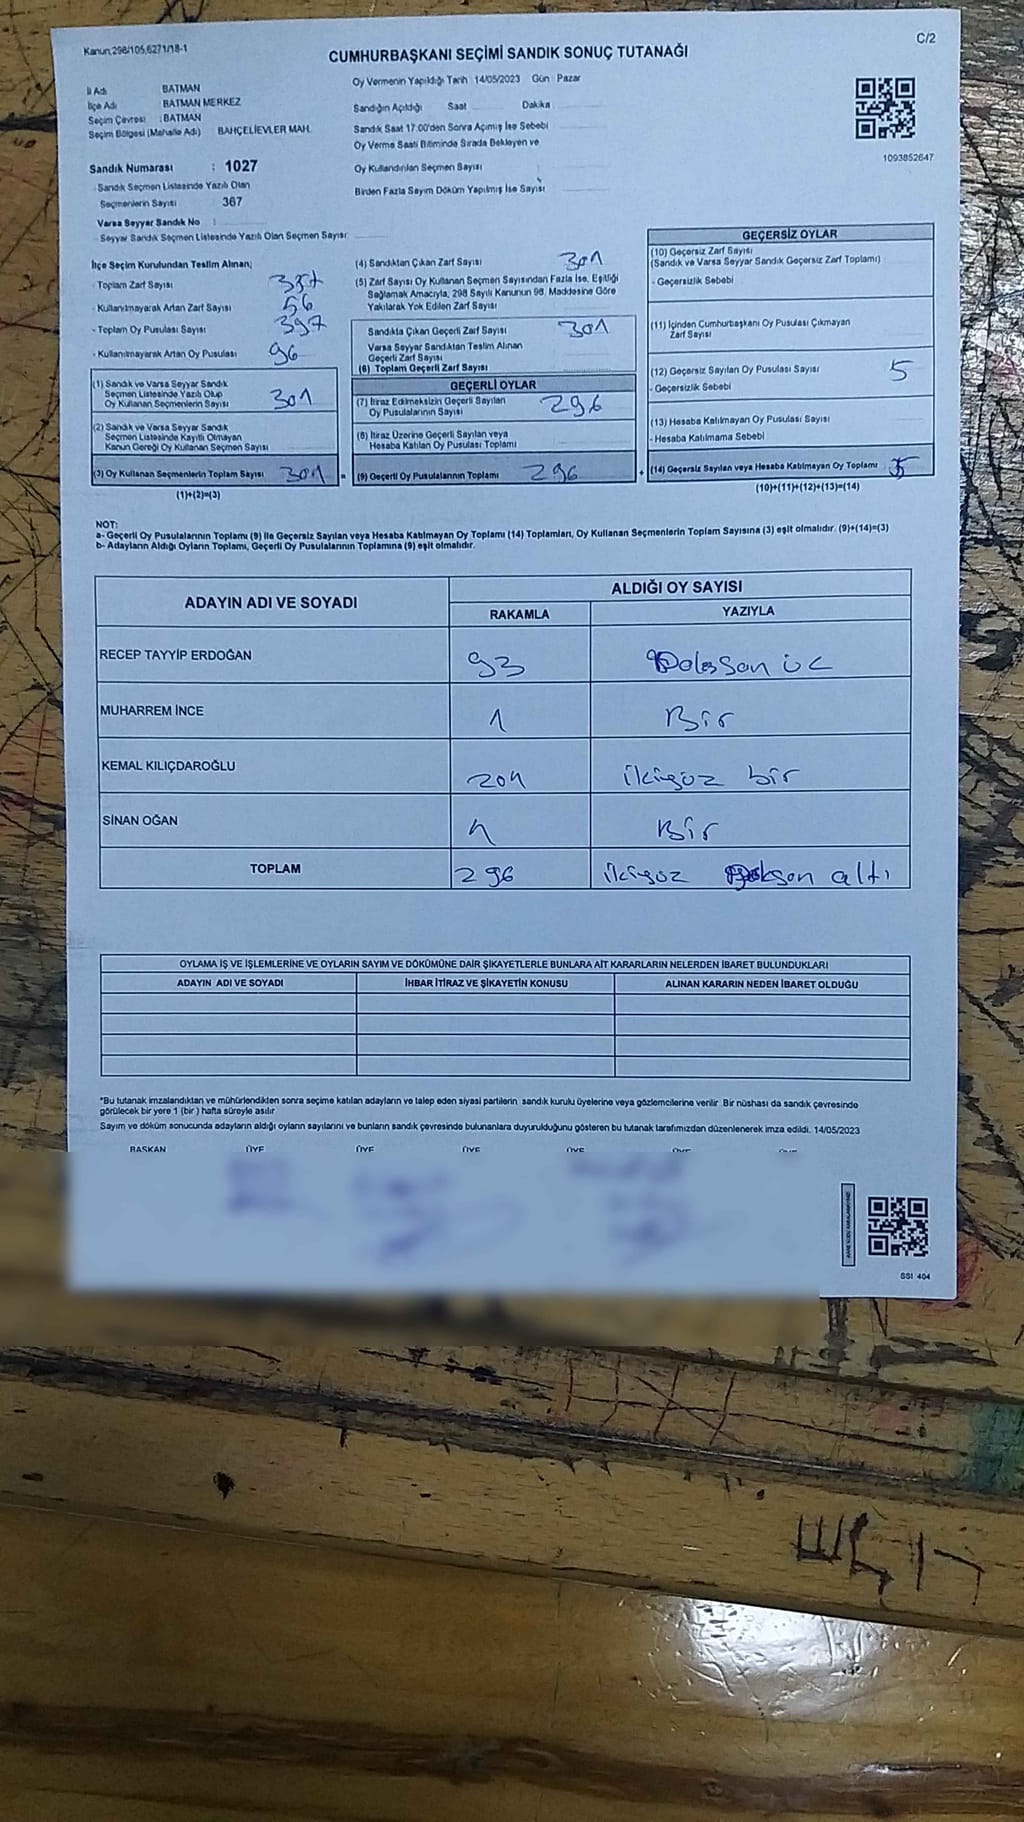 Kanun;298/105,6271/18-1
C/2
CUMHURBAŞKANI SEÇİMİ SANDIK SONUÇ TUTANAĞI
İl Adı BATMAN
İlçe Adı BATMAN MERKEZ
Seçim Çevresi : BATMAN
Seçim Bölgesi (Mahalle Adı) BAHÇELİEVLER MAH.
Oy Vermenin Yapıldığı Tarih : 14/05/2023 Gün : Pazar
Sandığın Açıldığı Saat Dakika
Sandık Saat 17:00'den Sonra Açımış İse Sebebi
Oy Verme Saati Bitiminde Sırada Bekleyen ve
Oy Kullandırılan Seçmen Sayısı
Birden Fazla Sayım Döküm Yapılmış İse Sayısı
1093852647
Sandık Numarası : 1027
Sandık Seçmen Listesinde Yazılı Olan
Seçmenlerin Sayısı 367
Varsa Seyyar Sandık No :
Seyyar Sandık Seçmen Listesinde Yazılı Olan Seçmen Sayısı:
İlçe Seçim Kurulundan Teslim Alınan;
- Toplam Zarf Sayısı
- Kullanılmayarak Artan Zarf Sayısı 56
- Toplam Oy Pusulası Sayısı 397
- Kullanılmayarak Artan Oy Pusulası 96
(1) Sandık ve Varsa Seyyar Sandık
Seçmen Listesinde Yazılı Olup
Oy Kullanan Seçmenlerin Sayısı 301
(2) Sandık ve Varsa Seyyar Sandık
Seçmen Listesinde Kayıtlı Olmayan
Kanun Gereği Oy Kullanan Seçmen Sayısı
(3) Oy Kullanan Seçmenlerin Toplam Sayısı 301 =
(1)+(2)=(3)
(4) Sandıktan Çıkan Zarf Sayısı 301
(5) Zarf Sayısı Oy Kullanan Seçmen Sayısından Fazla İse, Eşitliği
Sağlamak Amacıyla, 298 Sayılı Kanunun 98. Maddesine Göre
Yakılarak Yok Edilen Zarf Sayısı
Sandıkta Çıkan Geçerli Zarf Sayısı 301
Varsa Seyyar Sandıktan Teslim Alınan
Geçerli Zarf Sayısı
(6) Toplam Geçerli Zarf Sayısı
GEÇERLİ OYLAR
(7) İtiraz Edilmeksizin Geçerli Sayılan
Oy Pusulalarının Sayısı 296
(8) İtiraz Üzerine Geçerli Sayılan veya
Hesaba Katılan Oy Pusulası Toplamı
(9) Geçerli Oy Pusulalarının Toplamı 296 +
GEÇERSİZ OYLAR
(10) Geçersiz Zarf Sayısı
(Sandık ve Varsa Seyyar Sandık Geçersiz Zarf Toplamı)
- Geçersizlik Sebebi
(11) İçinden Cumhurbaşkanı Oy Pusulası Çıkmayan
Zarf Sayısı
(12) Geçersiz Sayılan Oy Pusulası Sayısı 5
- Geçersizlik Sebebi
(13) Hesaba Katılmayan Oy Pusulası Sayısı
- Hesaba Katılmama Sebebi
(14) Geçersiz Sayılan veya Hesaba Katılmayan Oy Toplamı 5
(10)+(11)+(12)+(13)=(14)
NOT:
a- Geçerli Oy Pusulalarının Toplamı (9) ile Geçersiz Sayılan veya Hesaba Katılmayan Oy Toplamı (14) Toplamları, Oy Kullanan Seçmenlerin Toplam Sayısına (3) eşit olmalıdır. (9)+(14)=(3)
b- Adayların Aldığı Oyların Toplamı, Geçerli Oy Pusulalarının Toplamına (9) eşit olmalıdır.
ADAYIN ADI VE SOYADI
ALDIĞI OY SAYISI
RAKAMLA YAZIYLA
RECEP TAYYİP ERDOĞAN 93 Doksan üç
MUHARREM İNCE 1 Bir
KEMAL KILIÇDAROĞLU 201 ikiyüz bir
SİNAN OĞAN 1 Bir
TOPLAM 296 ikiyüz Doksan altı
OYLAMA İŞ VE İŞLEMLERİNE VE OYLARIN SAYIM VE DÖKÜMÜNE DAİR ŞİKAYETLERLE BUNLARA AİT KARARLARIN NELERDEN İBARET BULUNDUKLARI
ADAYIN ADI VE SOYADI İHBAR İTİRAZ VE ŞİKAYETİN KONUSU ALINAN KARARIN NEDEN İBARET OLDUĞU
*Bu tutanak imzalandıktan ve mühürlendikten sonra seçime katılan adayların ve talep eden siyasi partilerin sandık kurulu üyelerine veya gözlemcilerine verilir. Bir nüshası da sandık çevresinde
görülecek bir yere 1 (bir) hafta süreyle asılır
Sayım ve döküm sonucunda adayların aldığı oyların sayılarını ve bunların sandık çevresinde bulunanlara duyurulduğunu gösteren bu tutanak tarafımızdan düzenlenerek imza edildi. 14/05/2023
BAŞKAN ÜYE ÜYE ÜYE ÜYE ÜYE
SSI 404